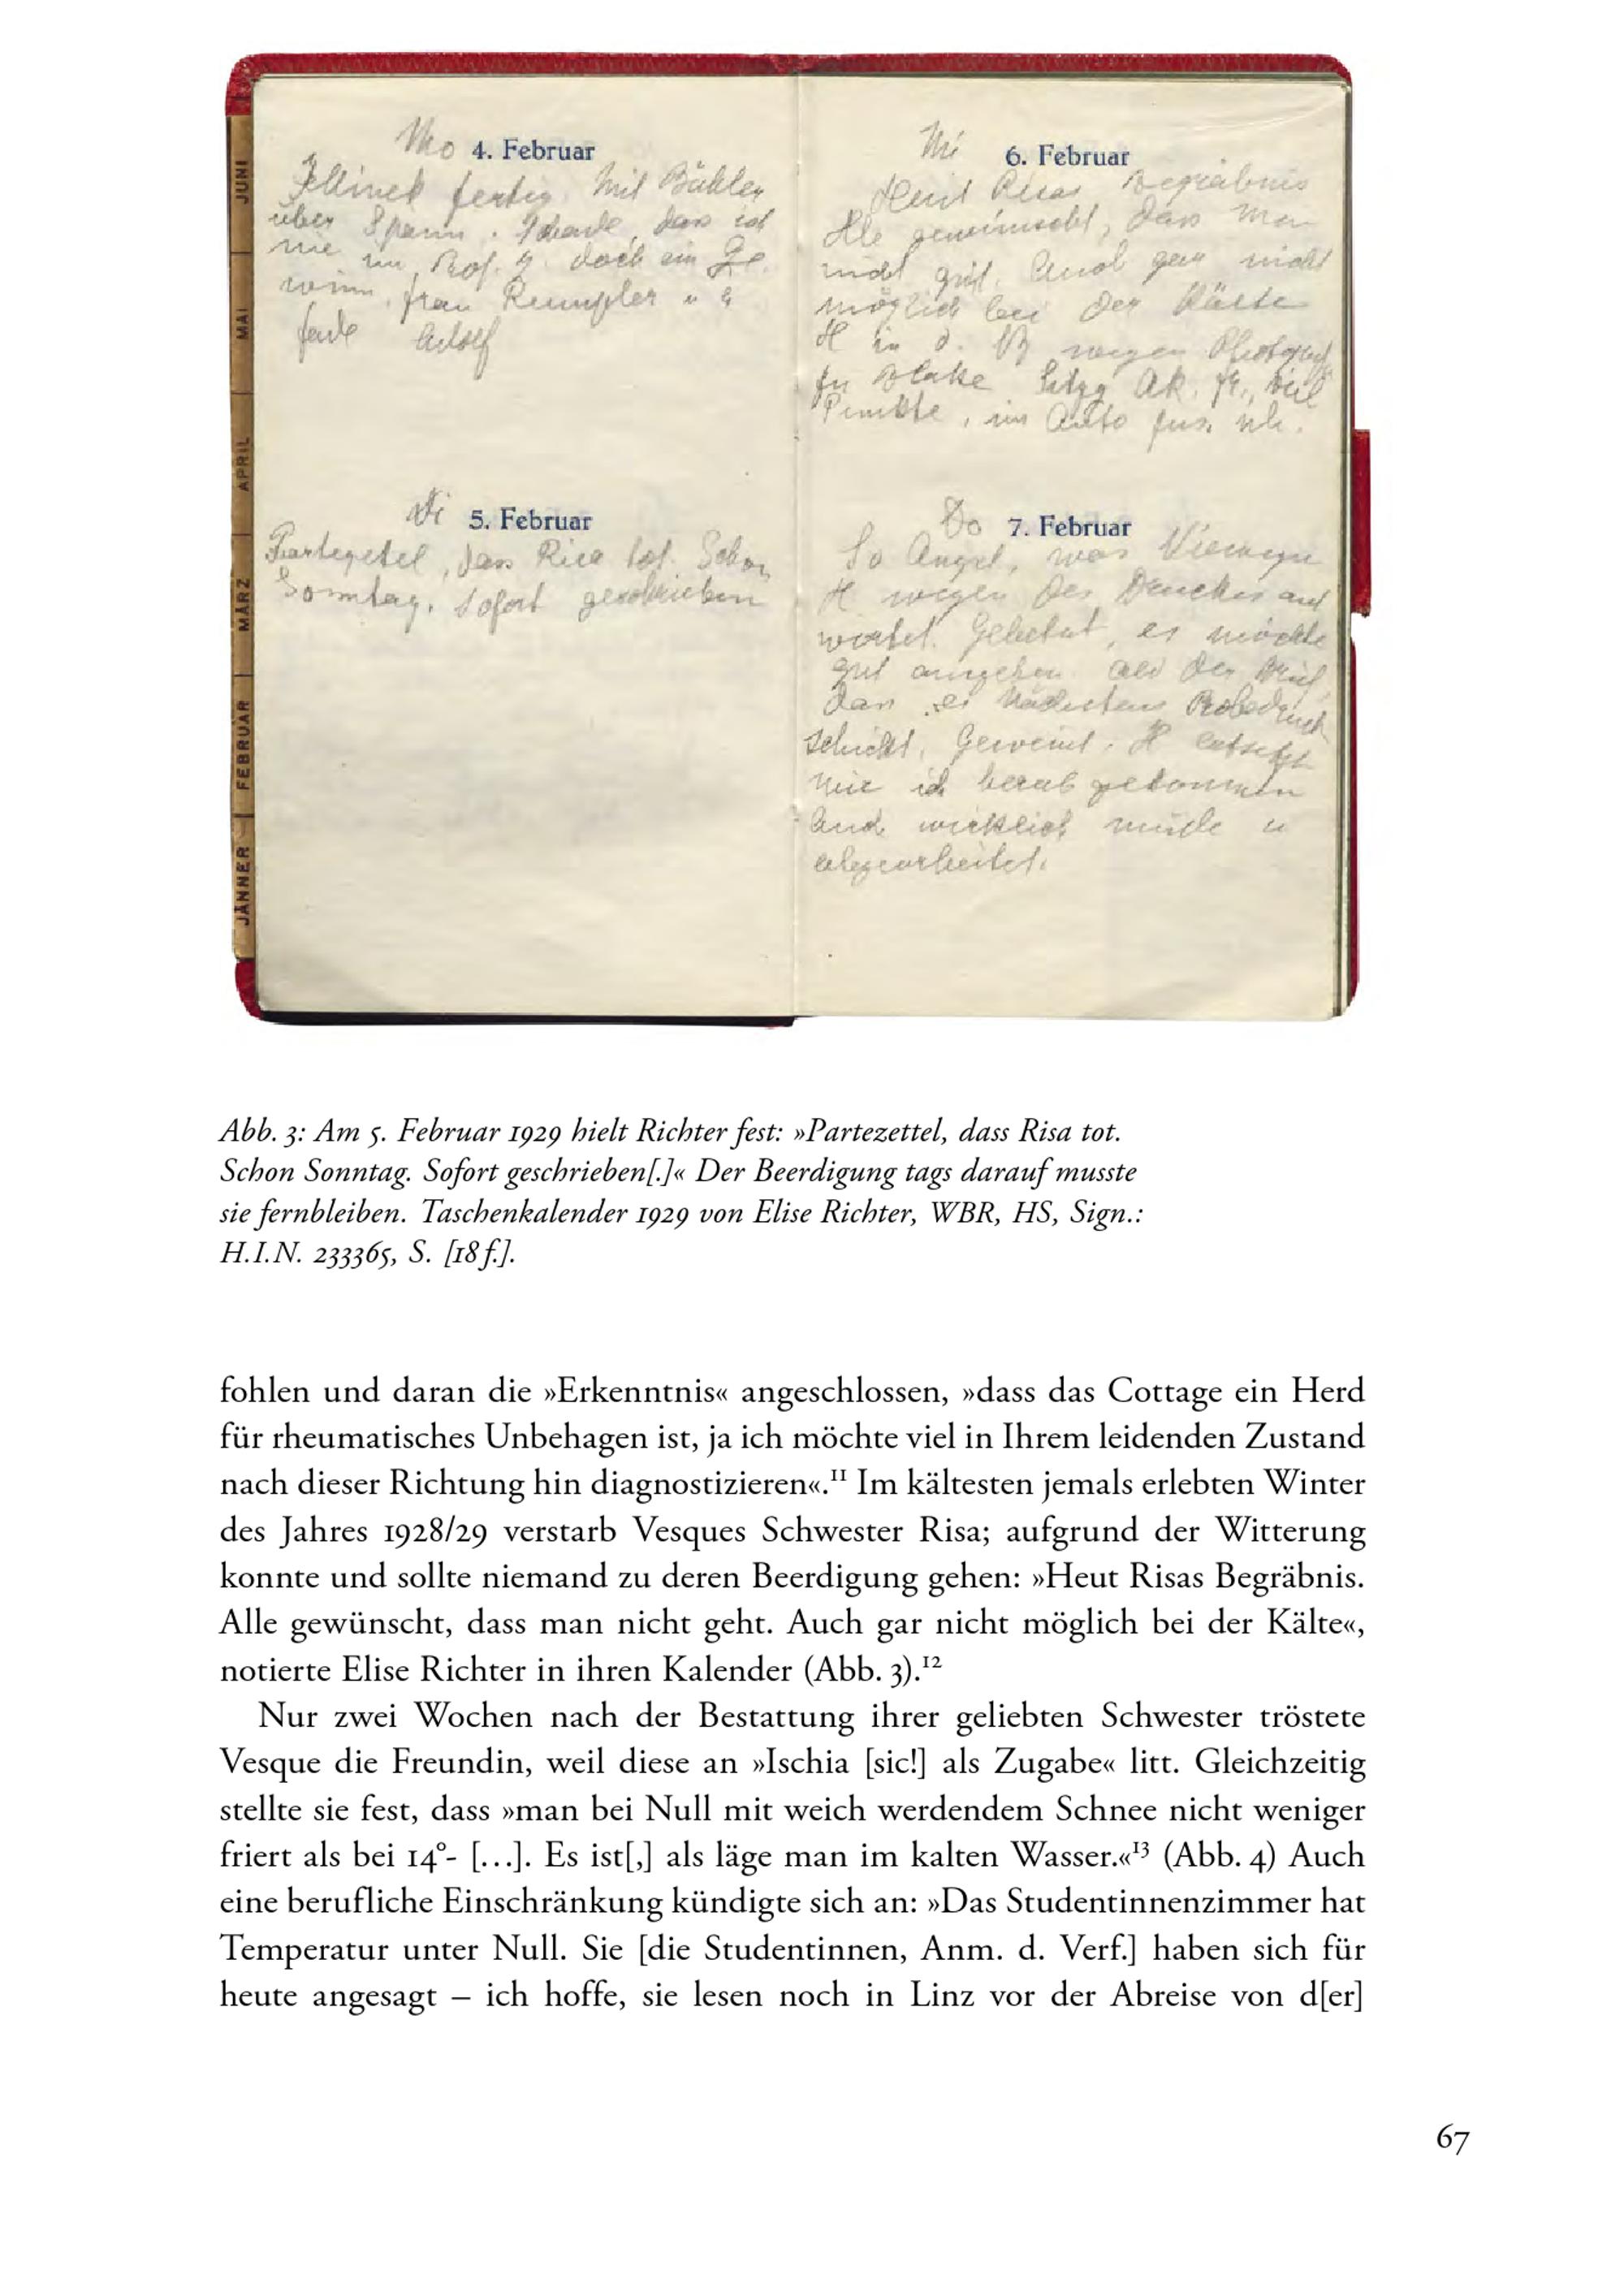 Mo 4. Februar
Jellinek fertig. Mit Bühler
über Spann. Schade, dass ich
nie im Prof. Z. doch ein Ge
winn. Frau Rumpler u
fade Adolf
Di 5. Februar
Partezetel, dass Risa tot. Schon
Sonntag. Sofort geschrieben
Mi 6. Februar
Heut Risas Begräbnis
Alle gewünscht, dass man
nicht geht. Auch gar nicht
möglich bei der Kälte
H in d. wegen
Sitzg Ak. Fr., viel
Punkte, im Auto
Do 7. Februar
So Angst, was
H wegen des Druckes ant
wortet. Gebetet, es möchte
gut ausgehen. der Brief,
dass er nächstens Probedruck
schickt. Geweint. H entsetzt
wie ich herab gekommen
Und wirklich müde u
abgearbeitet.
JUNI
MAI
APRIL
MÄRZ
FEBRUAR
JÄNNER
Abb. 3: Am 5. Februar 1929 hielt Richter fest: »Partezettel, dass Risa tot.
Schon Sonntag. Sofort geschrieben[.]« Der Beerdigung tags darauf musste
sie fernbleiben. Taschenkalender 1929 von Elise Richter, WBR, HS, Sign.:
H.I.N. 233365, S. [18 f.].
fohlen und daran die »Erkenntnis« angeschlossen, »dass das Cottage ein Herd
für rheumatisches Unbehagen ist, ja ich möchte viel in Ihrem leidenden Zustand
nach dieser Richtung hin diagnostizieren«.11 Im kältesten jemals erlebten Winter
des Jahres 1928/29 verstarb Vesques Schwester Risa; aufgrund der Witterung
konnte und sollte niemand zu deren Beerdigung gehen: »Heut Risas Begräbnis.
Alle gewünscht, dass man nicht geht. Auch gar nicht möglich bei der Kälte«,
notierte Elise Richter in ihren Kalender (Abb. 3).12
Nur zwei Wochen nach der Bestattung ihrer geliebten Schwester tröstete
Vesque die Freundin, weil diese an »Ischia [sic!] als Zugabe« litt. Gleichzeitig
stellte sie fest, dass »man bei Null mit weich werdendem Schnee nicht weniger
friert als bei 14°- [...]. Es ist[,] als läge man im kalten Wasser.«13 (Abb. 4) Auch
eine berufliche Einschränkung kündigte sich an: »Das Studentinnenzimmer hat
Temperatur unter Null. Sie [die Studentinnen, Anm. d. Verf.] haben sich für
heute angesagt – ich hoffe, sie lesen noch in Linz vor der Abreise von d[er]
67